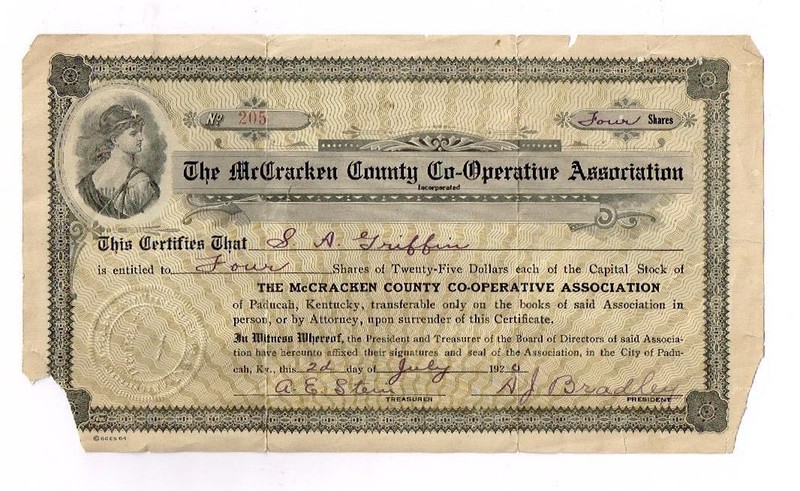 No 205 Four Shares
The McCracken County Co-Operative Association
Incorporated
This Certifies That S. A. Griffin
is entitled to Four Shares of Twenty-Five Dollars each of the Capital Stock of
THE McCRACKEN COUNTY CO-OPERATIVE ASSOCIATION
of Paducah, Kentucky, transferable only on the books of said Association in
person, or by Attorney, upon surrender of this Certificate.
In Witness Whereof, the President and Treasurer of the Board of Directors of said Associa-
tion have hereunto affixed their signatures and seal of the Association, in the City of Padu-
cah, Ky., this 2d day of July 1920
A. E. Stein A J Bradley
TREASURER PRESIDENT